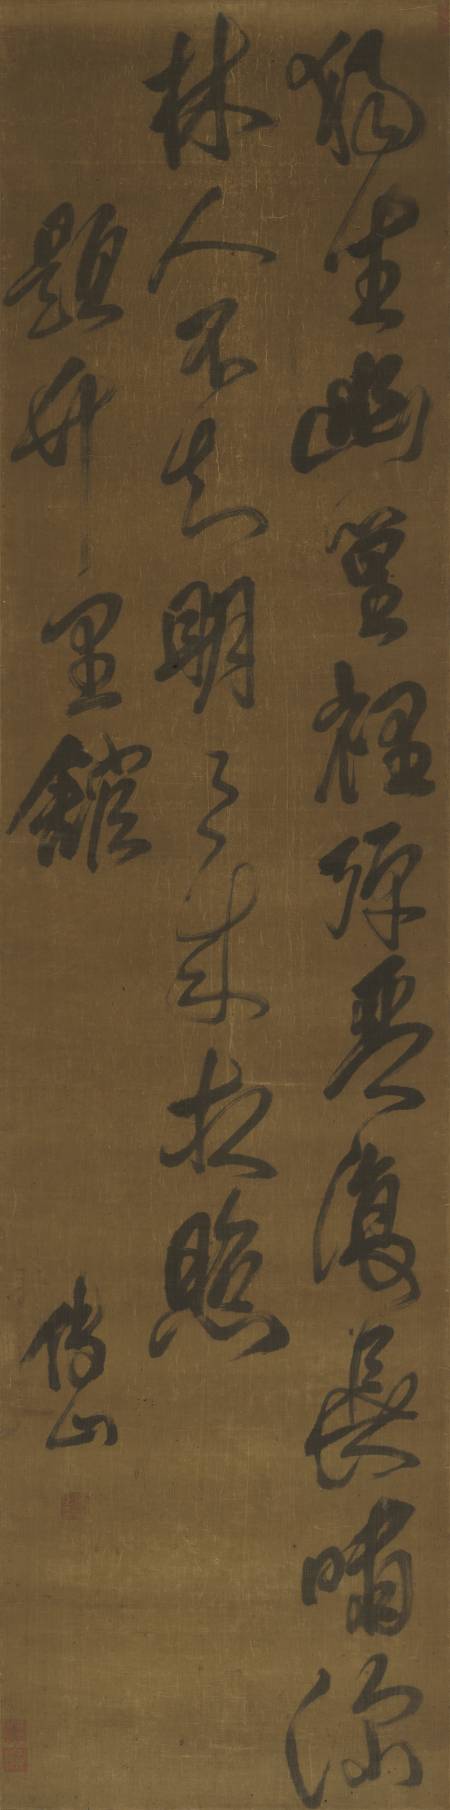 獨坐幽篁裡彈琴復長嘯深
林人不知明々來相照
題竹里舘
傅山